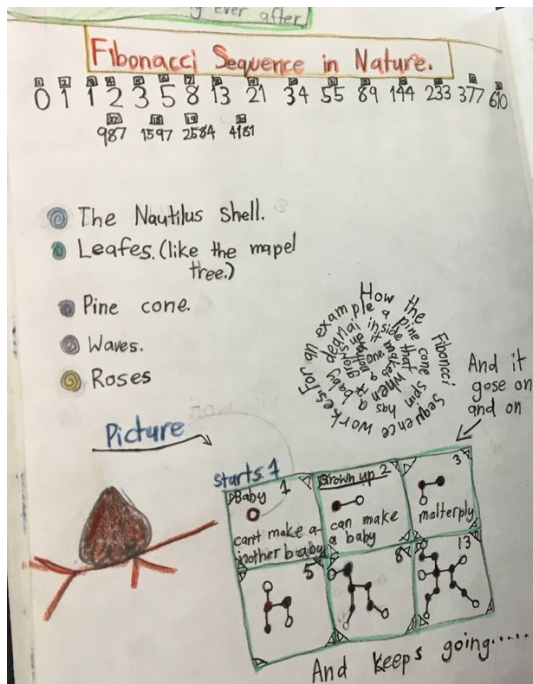 ever after.
Fibonacci Sequence in Nature.
0 1 1 2 3 5 8 13 21 34 55 89 144 233 377 610
987 1597 2584 4181
The Nautilus shell.
Leafes. (like the mapel
tree.)
Pine cone.
Waves.
Roses
How the Fibonacci Sequence workes. For an example a pine cone has a baby
spin
inside that
when
it makes
And it
gose on
and on
Picture
starts 1
Baby 1
cant make a
nother baby
Grown up 2
can make
a baby
3
malterply
5
8
13
And keeps going......